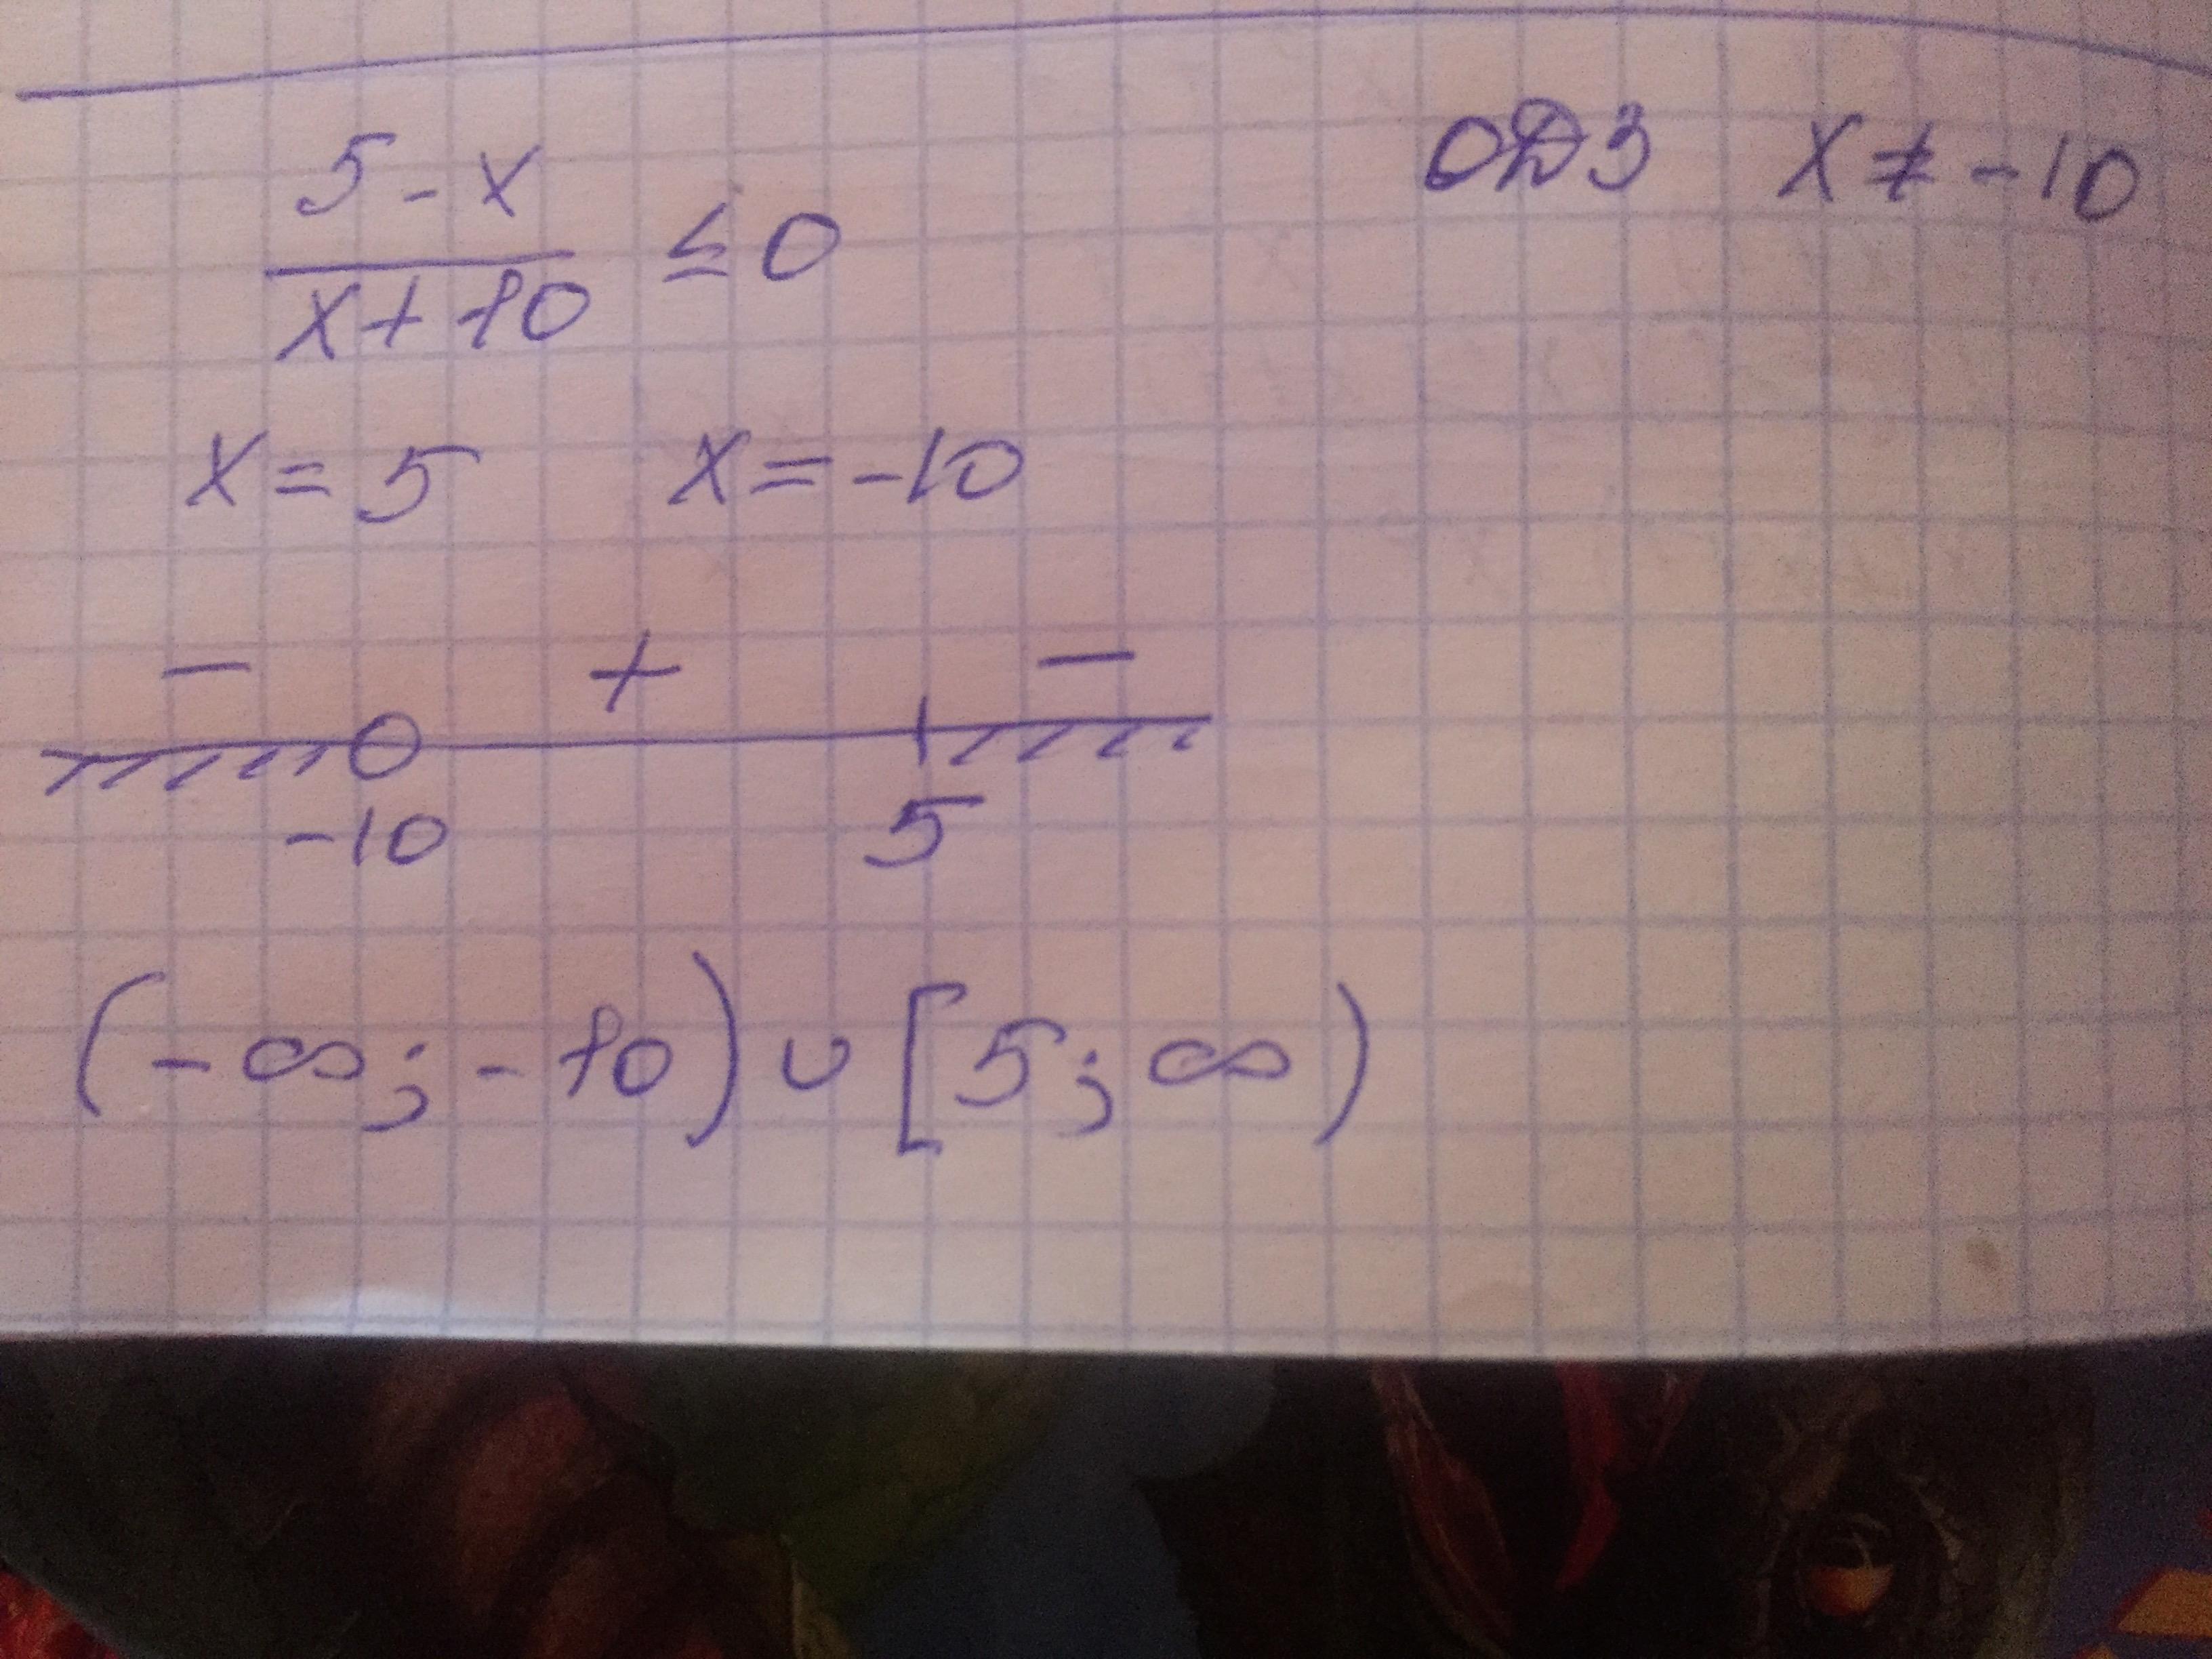 5 - x
x + 10 ≤ 0
ОДЗ x ≠ -10
x = 5 x = -10
- + -
-10 5
(-∞; -10) ∪ [5; ∞)